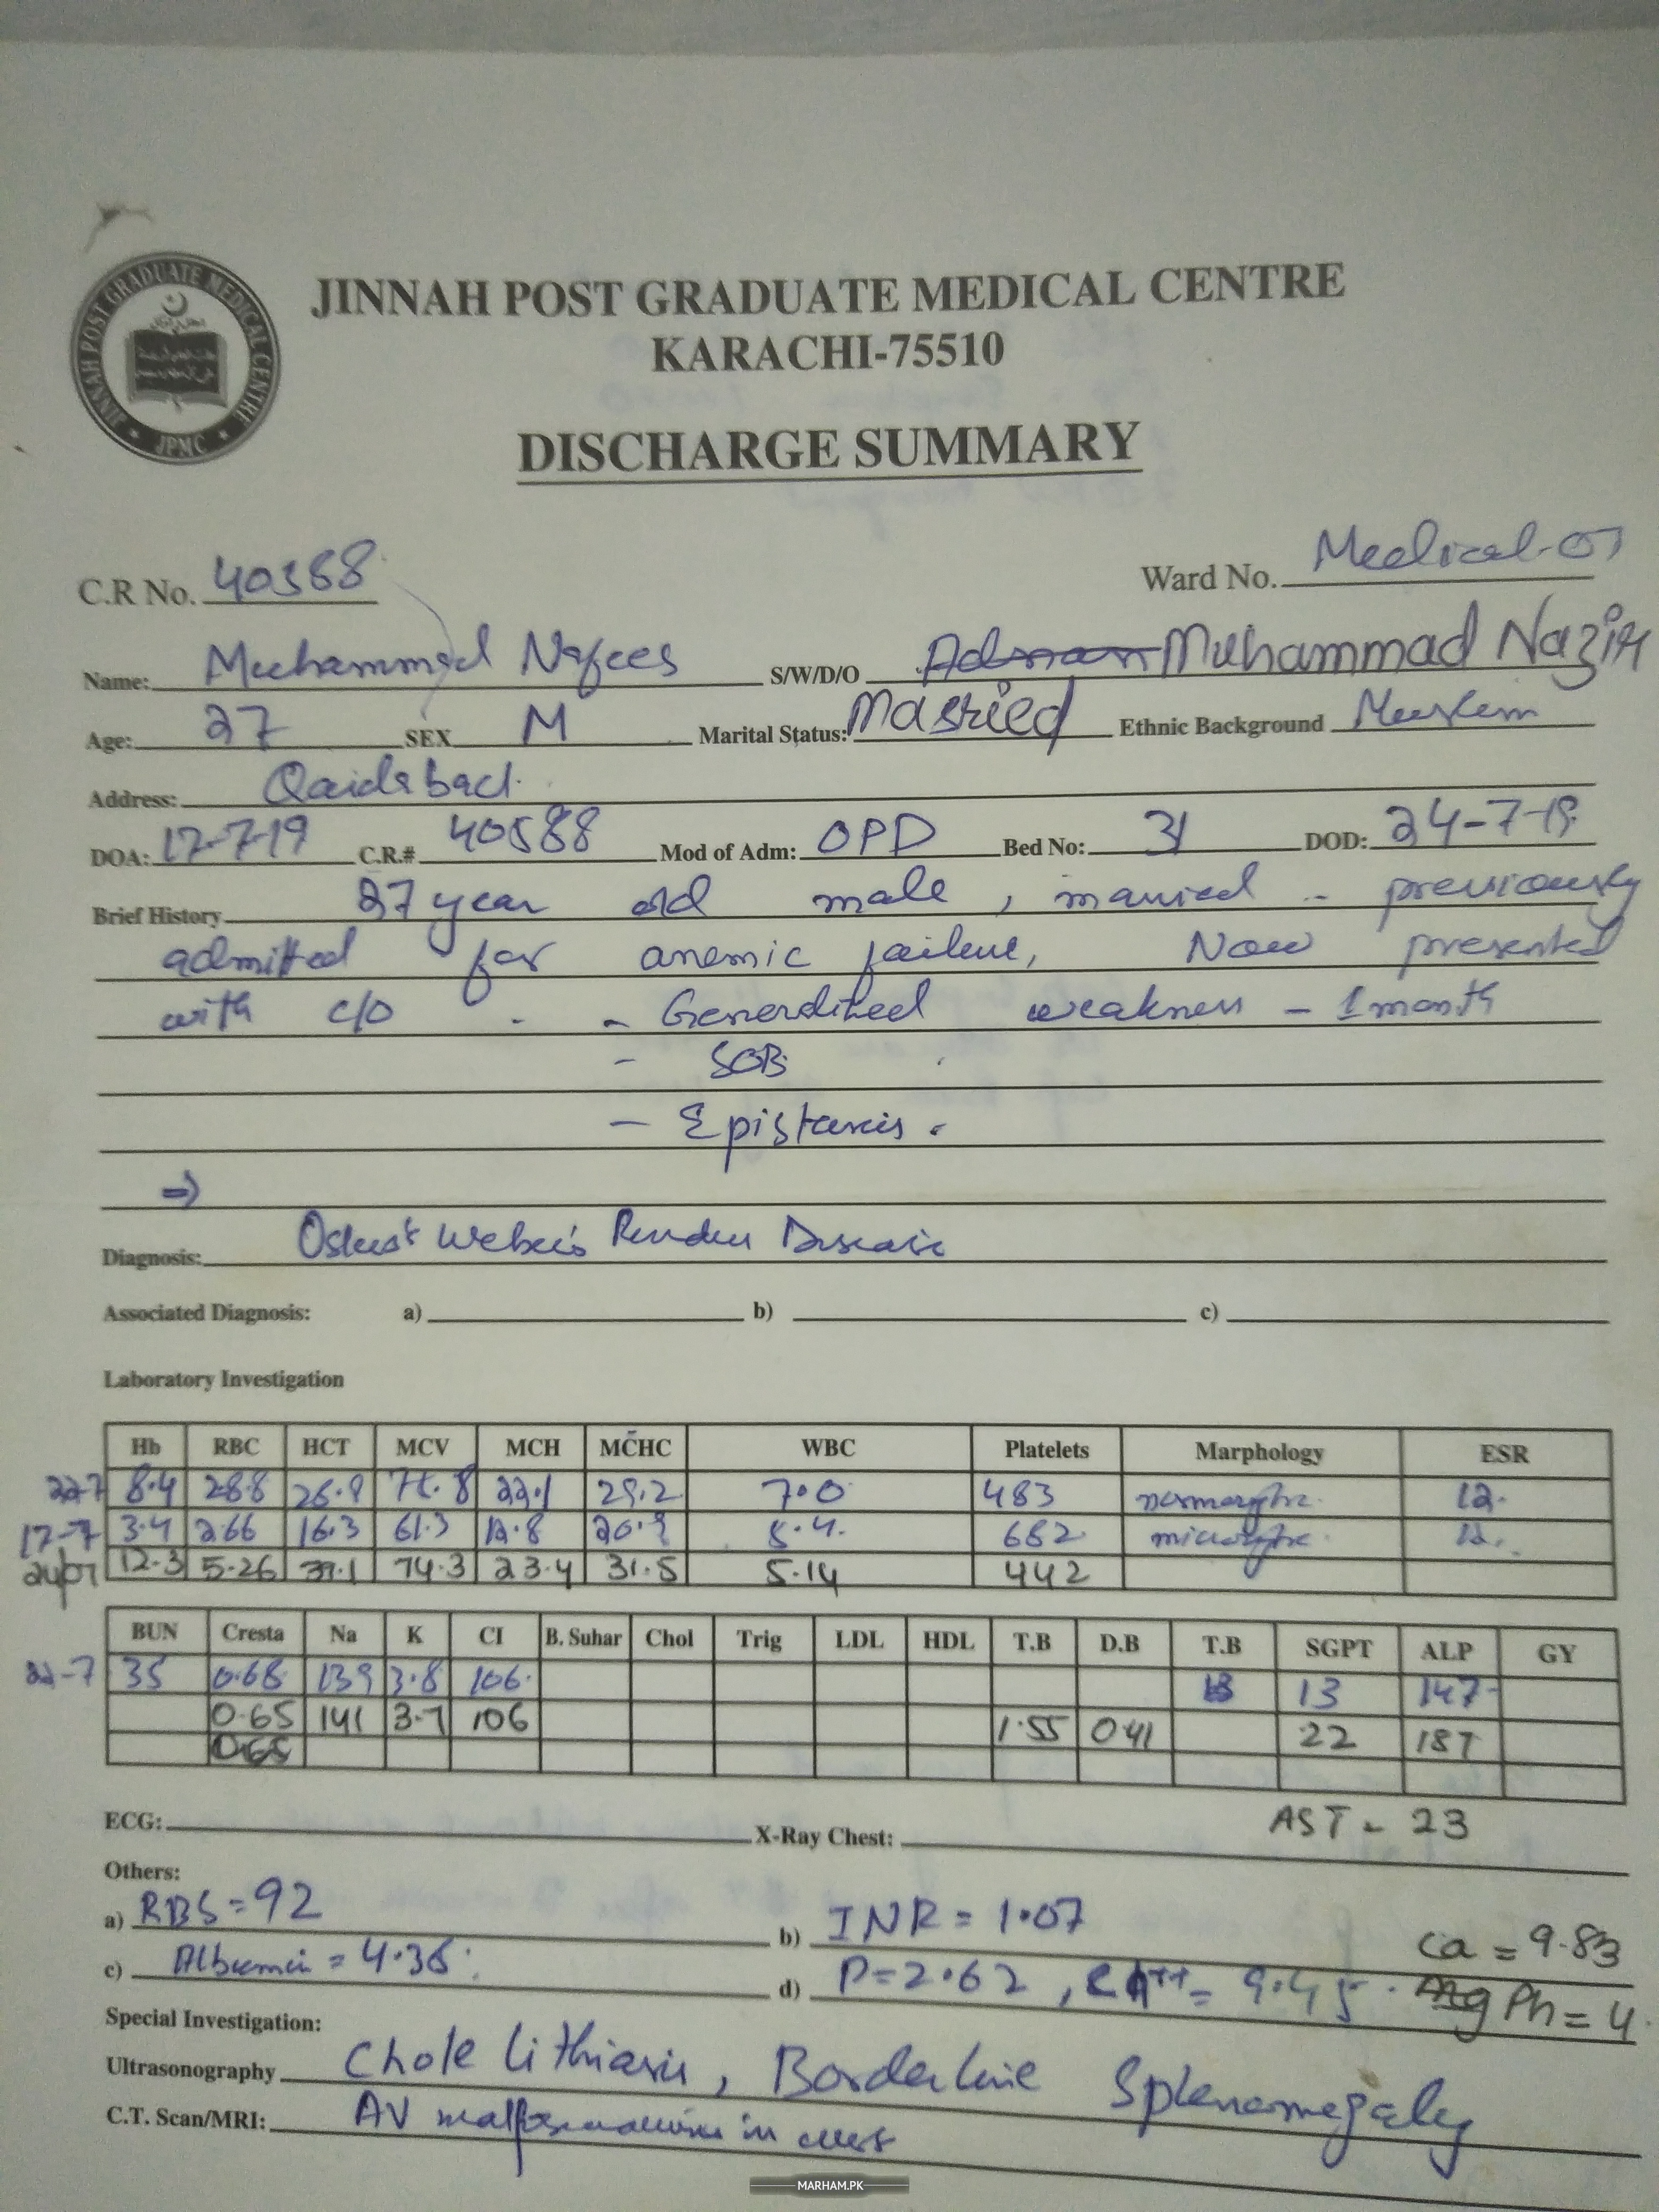 JINNAH POST GRADUATE MEDICAL CENTRE
JPMC
JINNAH POST GRADUATE MEDICAL CENTRE
KARACHI-75510
DISCHARGE SUMMARY
C.R No. 40588 Ward No. Medical-07
Name: Muhammad Nafees S/W/D/O Adnan Muhammad Nazir
Age: 27 SEX M Marital Status: Married Ethnic Background Muslim
Address: Qaidabad.
DOA: 17-7-19 C.R.# 40588 Mod of Adm: OPD Bed No: 31 DOD: 24-7-19
Brief History 27 year old male, married - previously
admitted for anemic failure, Now presented
with c/o - Generalized weakness - 1 month
- SOB
- Epistaxis.
⇒
Diagnosis: Osler's Weber's Rendu Disease
Associated Diagnosis: a) b) c)
Laboratory Investigation
Hb RBC HCT MCV MCH MCHC WBC Platelets Marphology ESR
22-7 8.4 28.8 22.1 29.2 7.0 483 12.
17-7 3.4 2.66 16.3 61.3 12.8 20.9 5.4. 682 microcytic 12.
24/07 12.3 5.26 39.1 74.3 23.4 31.5 5.14 442
BUN Cresta Na K CI B. Suhar Chol Trig LDL HDL T.B D.B T.B SGPT ALP GY
22-7 35 0.68 139 3.8 106. 13 147-
0.65 141 3.7 106 1.55 0.41 22 187
0.65
AST - 23
ECG: X-Ray Chest:
Others:
a) RBS = 92 b) INR = 1.07 Ca = 9.83
c) Albumin = 4.36 d) P=2.62, CA++ = 9.45. Mg Ph = 4.
Special Investigation:
Ultrasonography Cholelithiasis, Borderline Splenomegaly
C.T. Scan/MRI: AV malformation in
MARHAM.PK